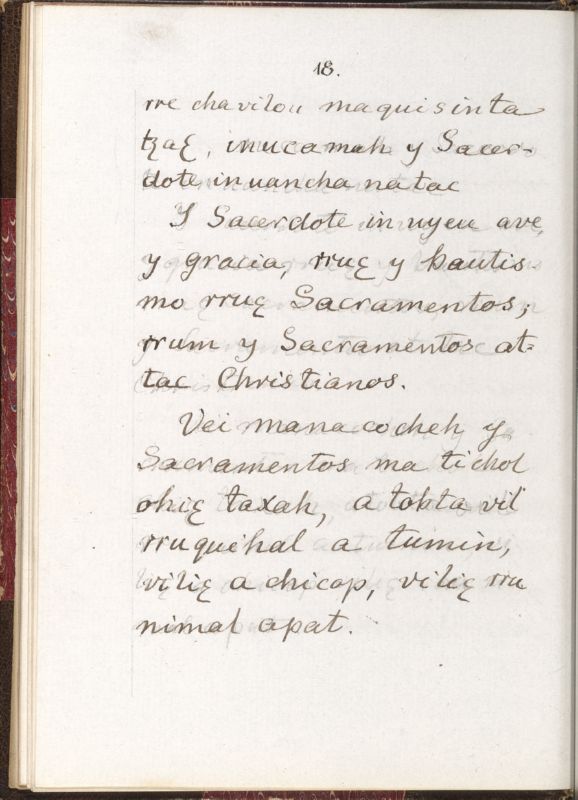 18.
rre chavilou maquisinta
tzaꜫ, inucamah y Sacer-
dote inuancha natac
I Sacerdote inuyeu ave,
y gracia, rruꜫ y bautis-
mo rruꜫ Sacramentos,
rrum y Sacramentos at-
tac Christianos.
Vei mana cocheh y
Sacramentos ma tichol
ohiꜫ taxah, a tobta vil
rruquehal a tumin,
viliꜫ a chicop, viliꜫ rru
nimal apat.